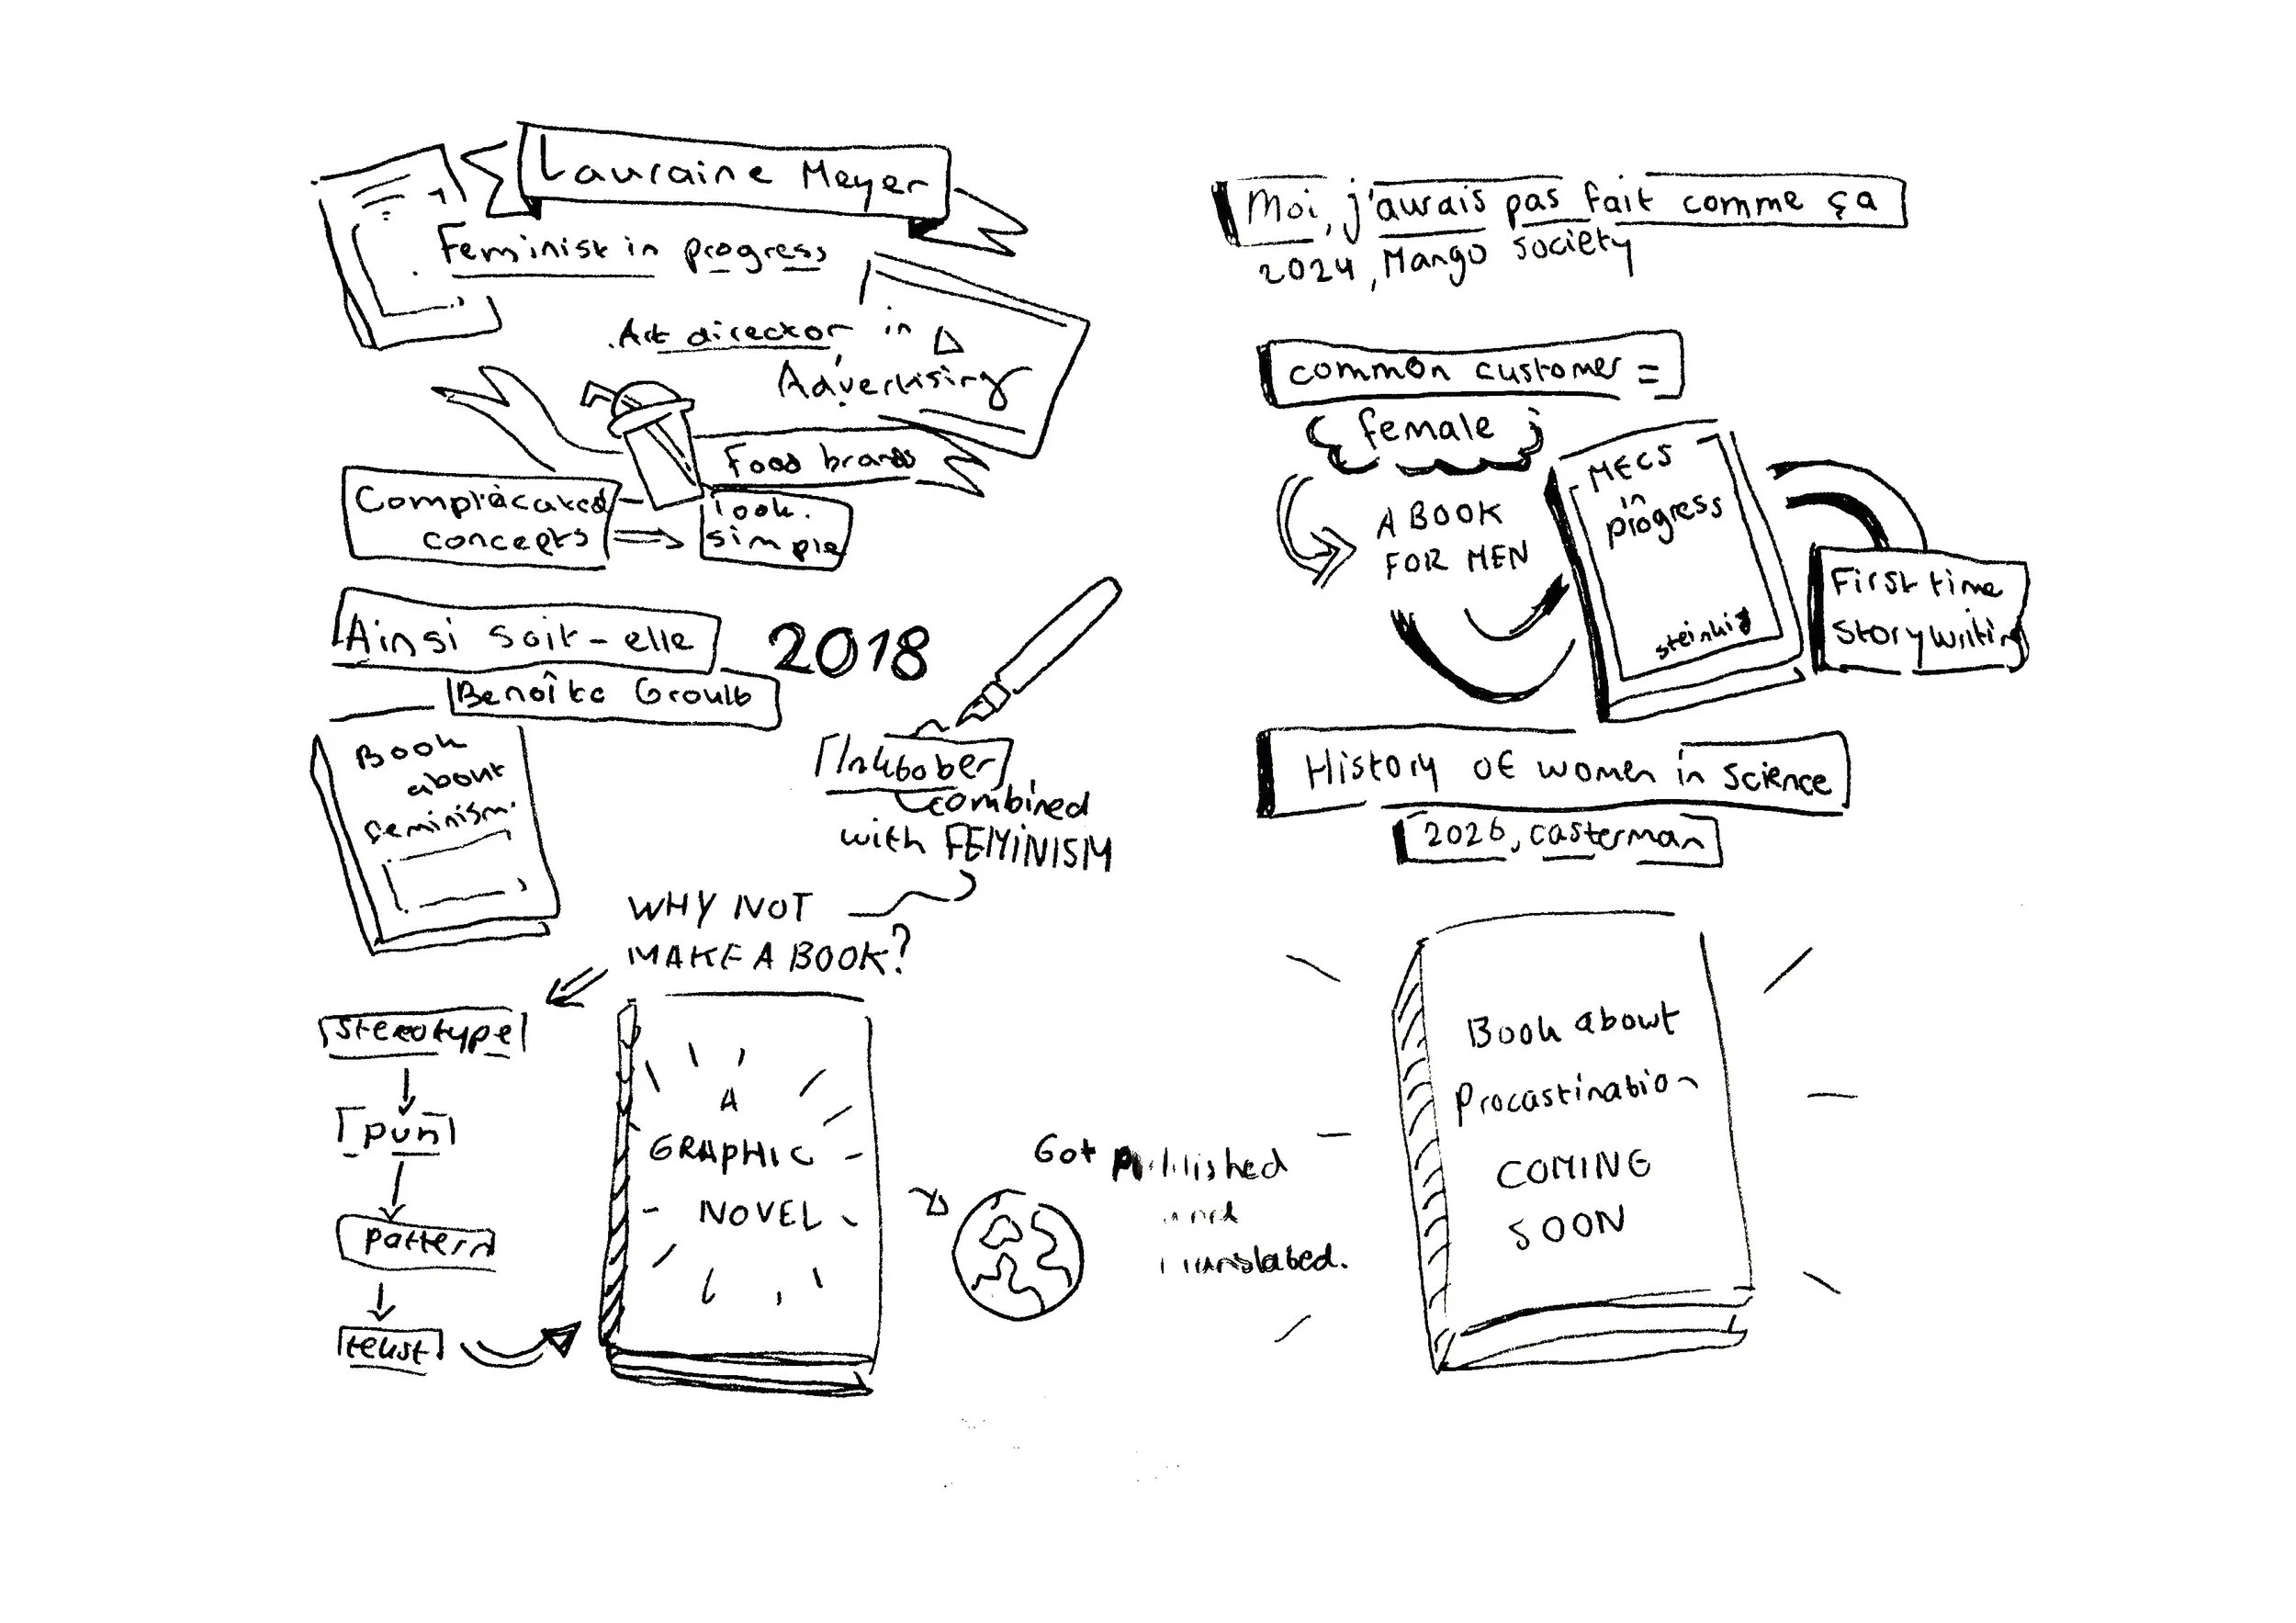 Lauraine Meyer
Feminist in progress
Art director in
Advertising
Food brands
Complicated
concepts
look
simple
Ainsi soit-elle
2018
Benoîte Groult
Book
about
feminism
Inktober
combined
with FEMINISM
WHY NOT
MAKE A BOOK?
stereotype
pun
pattern
tekst
A
GRAPHIC
NOVEL
Got published
and
translated.
Moi, j'aurais pas fait comme ça
2024, Mango society
common customer =
female
A BOOK
FOR MEN
MECS
in
progress
steinkis
First time
story writing
History of women in science
2026, casterman
Book about
Procastination
COMING
SOON